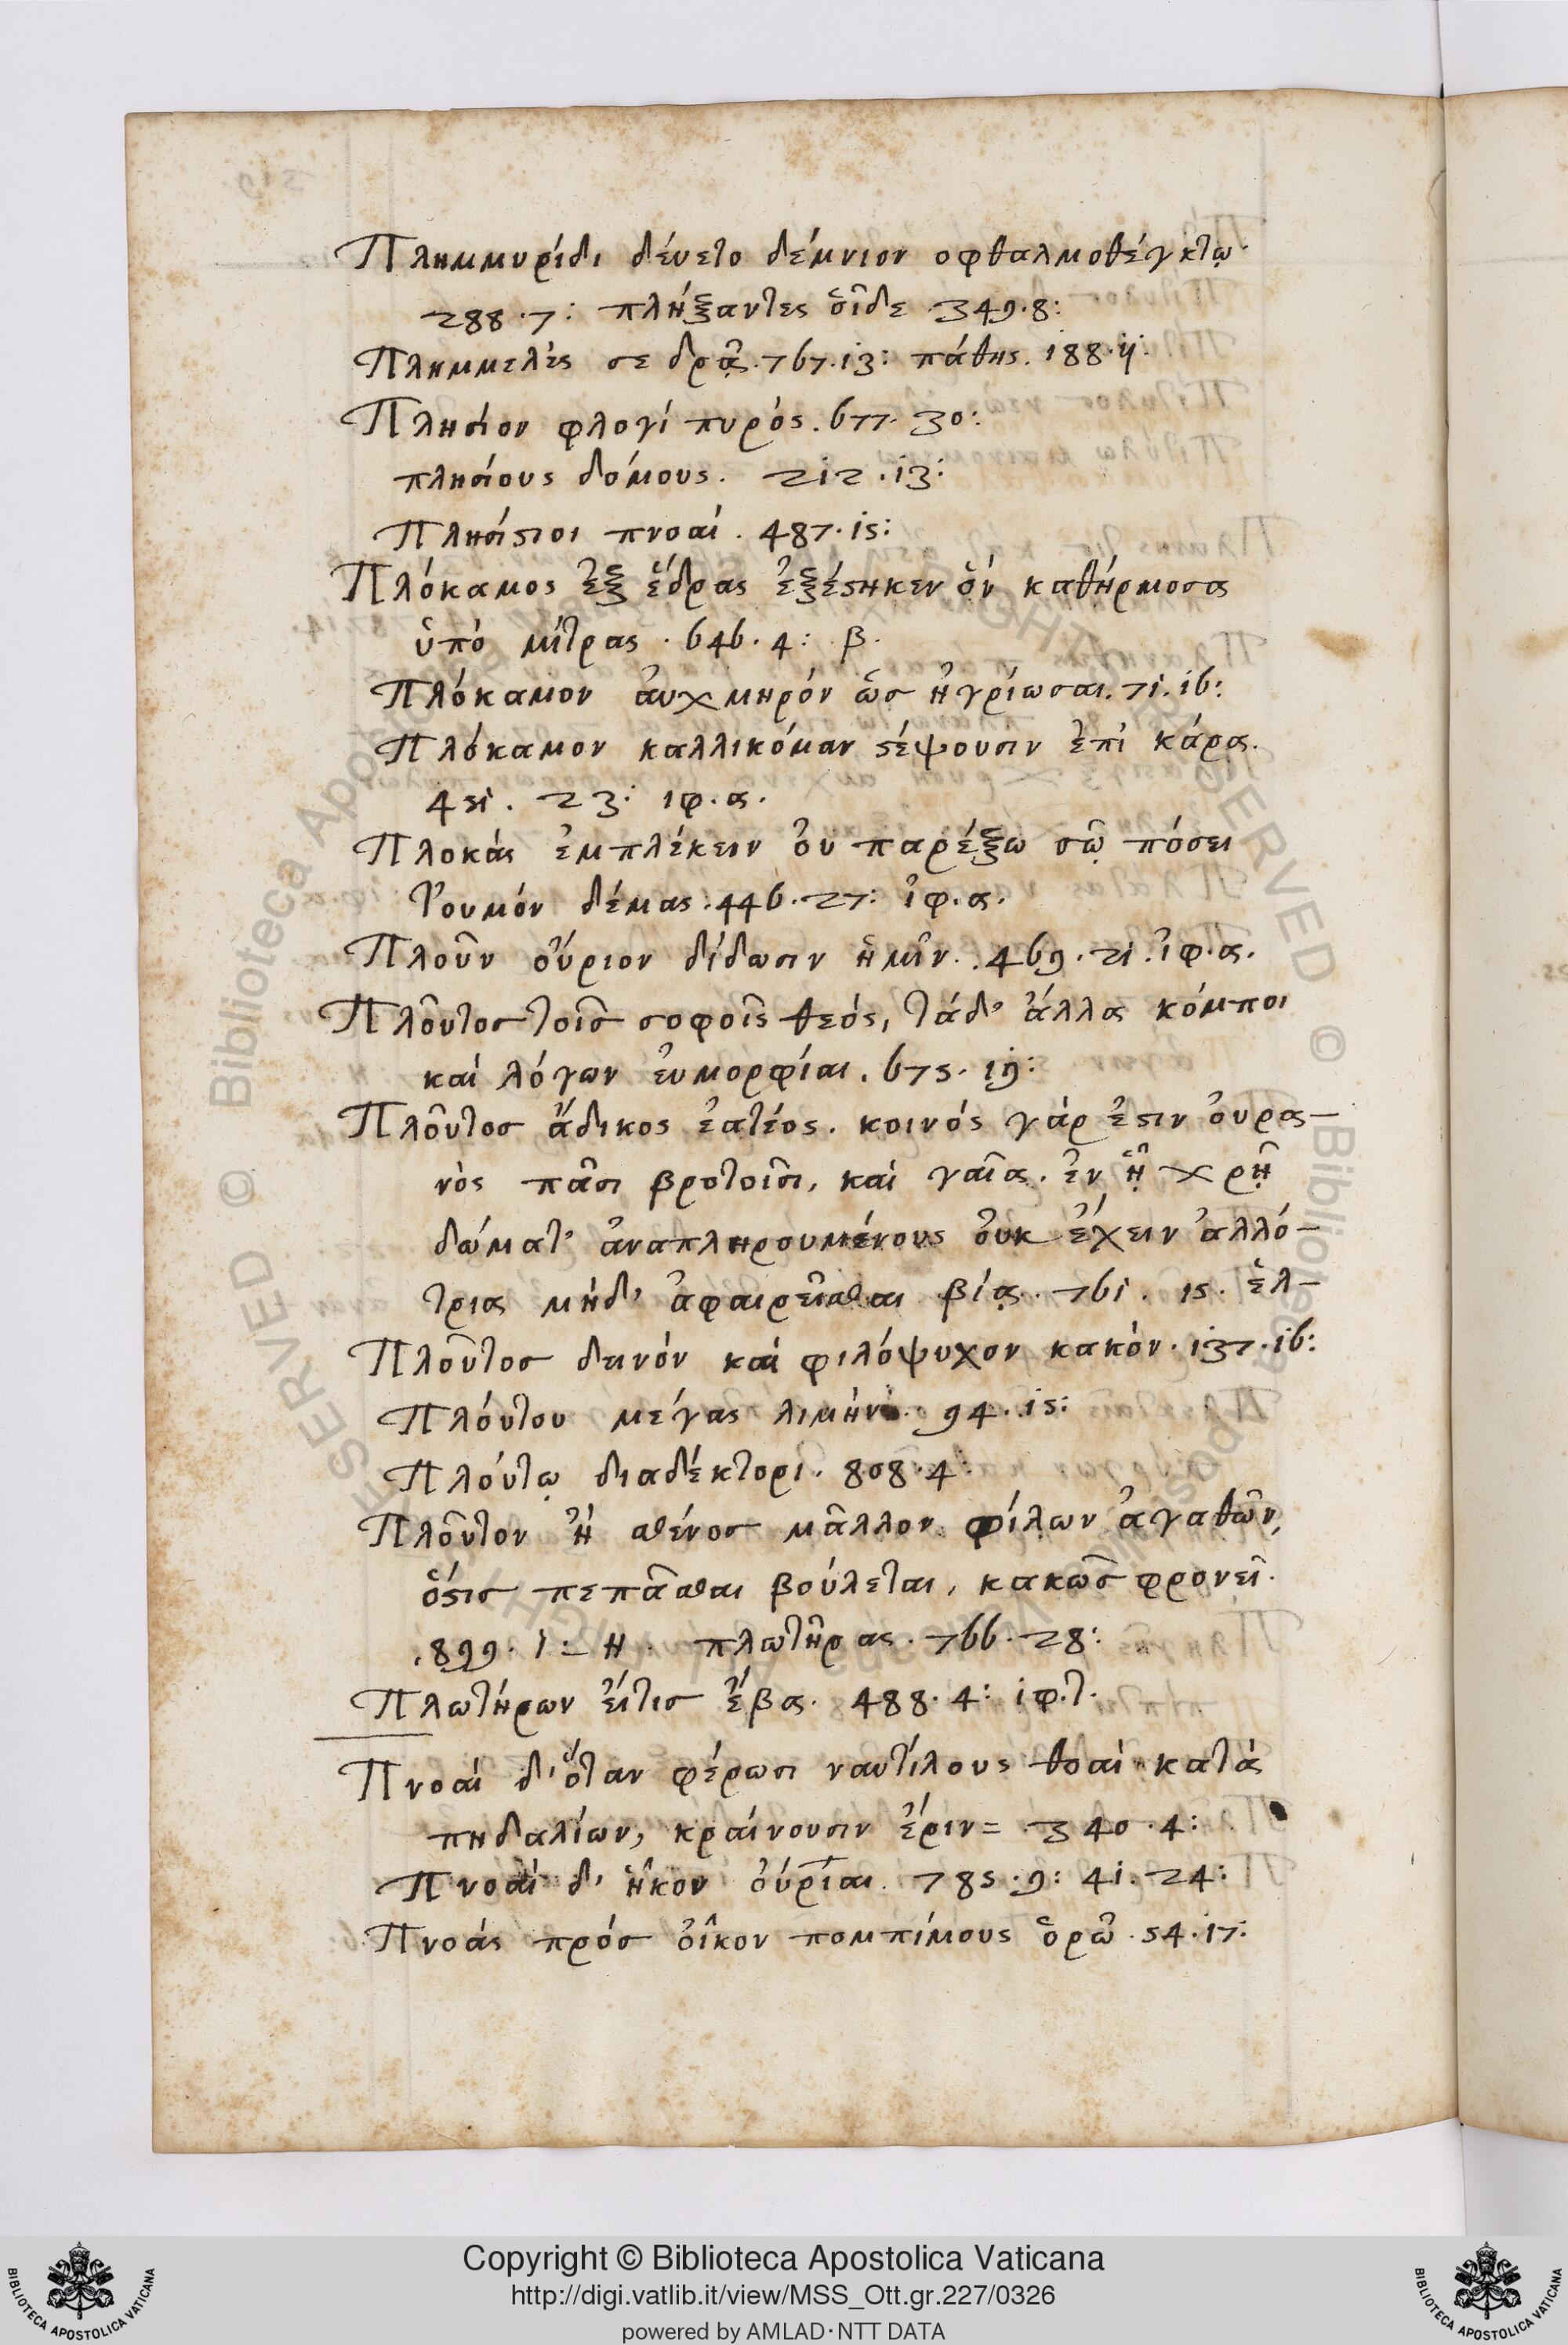 Πλημμυρίδι δέυετο δέμνιον οφθαλμοθέγκτῳ·
288·7: πλήξαντες ὅιδε ·349·8:
Πλημμελὲς σε δρᾷ·767·13: πάθης. 188·
Πλησίον φλογὶ πυρός. 677·30:
πλησίους δόμους. 212·13:
Πλησίστιοι πνοαί. 487·15:
Πλόκαμος ἐξ ἕδρας ἐξέστηκεν ὅν καθήρμοσα
ὑπὸ μίτρας·646·4: β·
Πλόκαμον ἀυχμηρόν ὡσ ἠγρίωσαι·71·16:
Πλόκαμον καλλικόμαν στέψουσιν ἐπὶ κάρα.
451. 23: ιφ.α.
Πλοκάς ἐμπλέκειν ὀυ παρέξω σῷ πόσει
Τουμόν δέμας·446·27: ἰφ.α.
Πλοῦν ὀύριον δίδωσιν ἡμῖν. 469·21. ἰφ.α.
Πλοῦτοσ τοῖσ σοφοῖς θεός, τάδ' ἄλλα κόμποι
καὶ λόγων ἐυμορφίαι. 675·19:
Πλοῦτοσ ἄδικος ἐατέος. κοινός γὰρ ἐστιν ὀυρα-
νὸς πᾶσι βροτοῖσι, καὶ γαῖα. ἐν ᾗ χρῇ
δώματ' ἀναπληρουμένους ὀυκ ἔχειν ἀλλό-
τρια μήδ' ἀφαιρεῖσθαι βίᾳ. 761. 15. ἑλ-
Πλοῦτοσ δεινόν καὶ φιλόψυχον κακόν·137·16:
Πλόυτου μέγας λιμήν. 94·15:
Πλόυτῳ διαδέκτορι. 808·4
Πλοῦτον ἢ σθένοσ μᾶλλον φίλων ἀγαθῶν,
ὅστισ πεπᾶσθαι βούλεται, κακῶσ φρονεῖ·
899·1: Η· πλωτῆρας·766·28:
Πλωτήρων ἔιτισ ἔβα. 488·4: ιφ.τ.
Πνοαί δ' ὅταν φέρωσι ναυτίλους θοαὶ κατὰ
πηδαλίων, κραίνουσιν ἔριν= 340·4:
Πνοαί δ' ἧκον ὀύρίαι. 785·9: 41·24:
Πνοάς πρόσ ὀῖκον πομπίμους ὁρῶ·54·17:
Copyright © Biblioteca Apostolica Vaticana
http://digi.vatlib.it/view/MSS_Ott.gr.227/0326
powered by AMLAD·NTT DATA